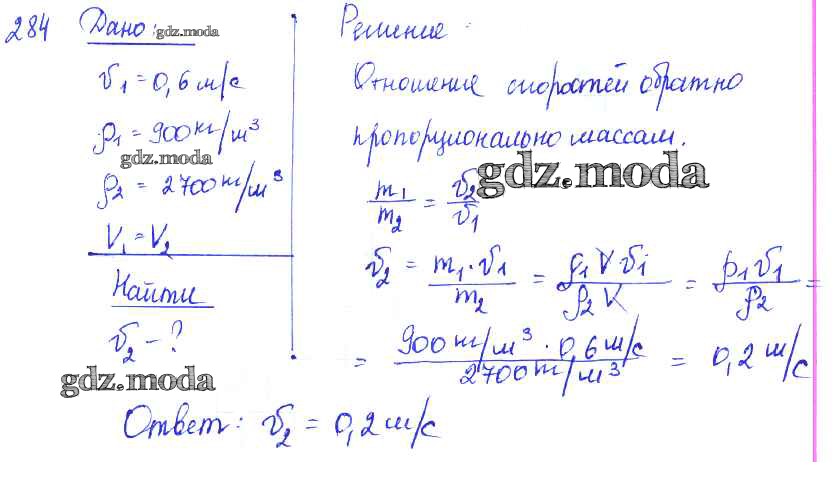 284 Дано: gdz.moda
v1 = 0,6 м/с
ρ1 = 900 кг/м³
gdz.moda
ρ2 = 2700 кг/м³
V1 = V2
Найти
v2 - ?
gdz.moda
Решение:
Отношение скоростей обратно
пропорционально массам.
gdz.moda
m1/m2 = v2/v1
v2 = m1·v1/m2 = ρ1Vv1/ρ2V = ρ1v1/ρ2 =
= 900 кг/м³ · 0,6 м/с / 2700 кг/м³ = 0,2 м/с
Ответ: v2 = 0,2 м/с